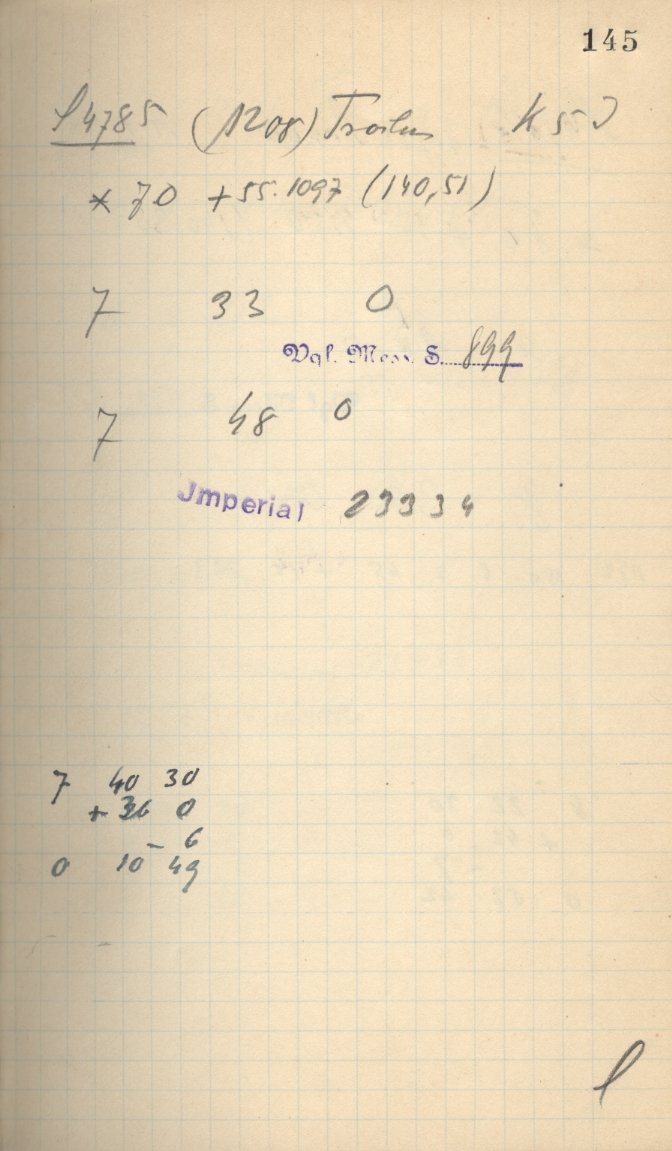 145
P 4785 (1208) Troilus K 5
* 70 + 55.1097 (140,51)
7 33 0
Vgl. Mess. S. 899
7 48 0
Jmperial 23334
7 40 30
+ 36 0
- 6
0 10 49